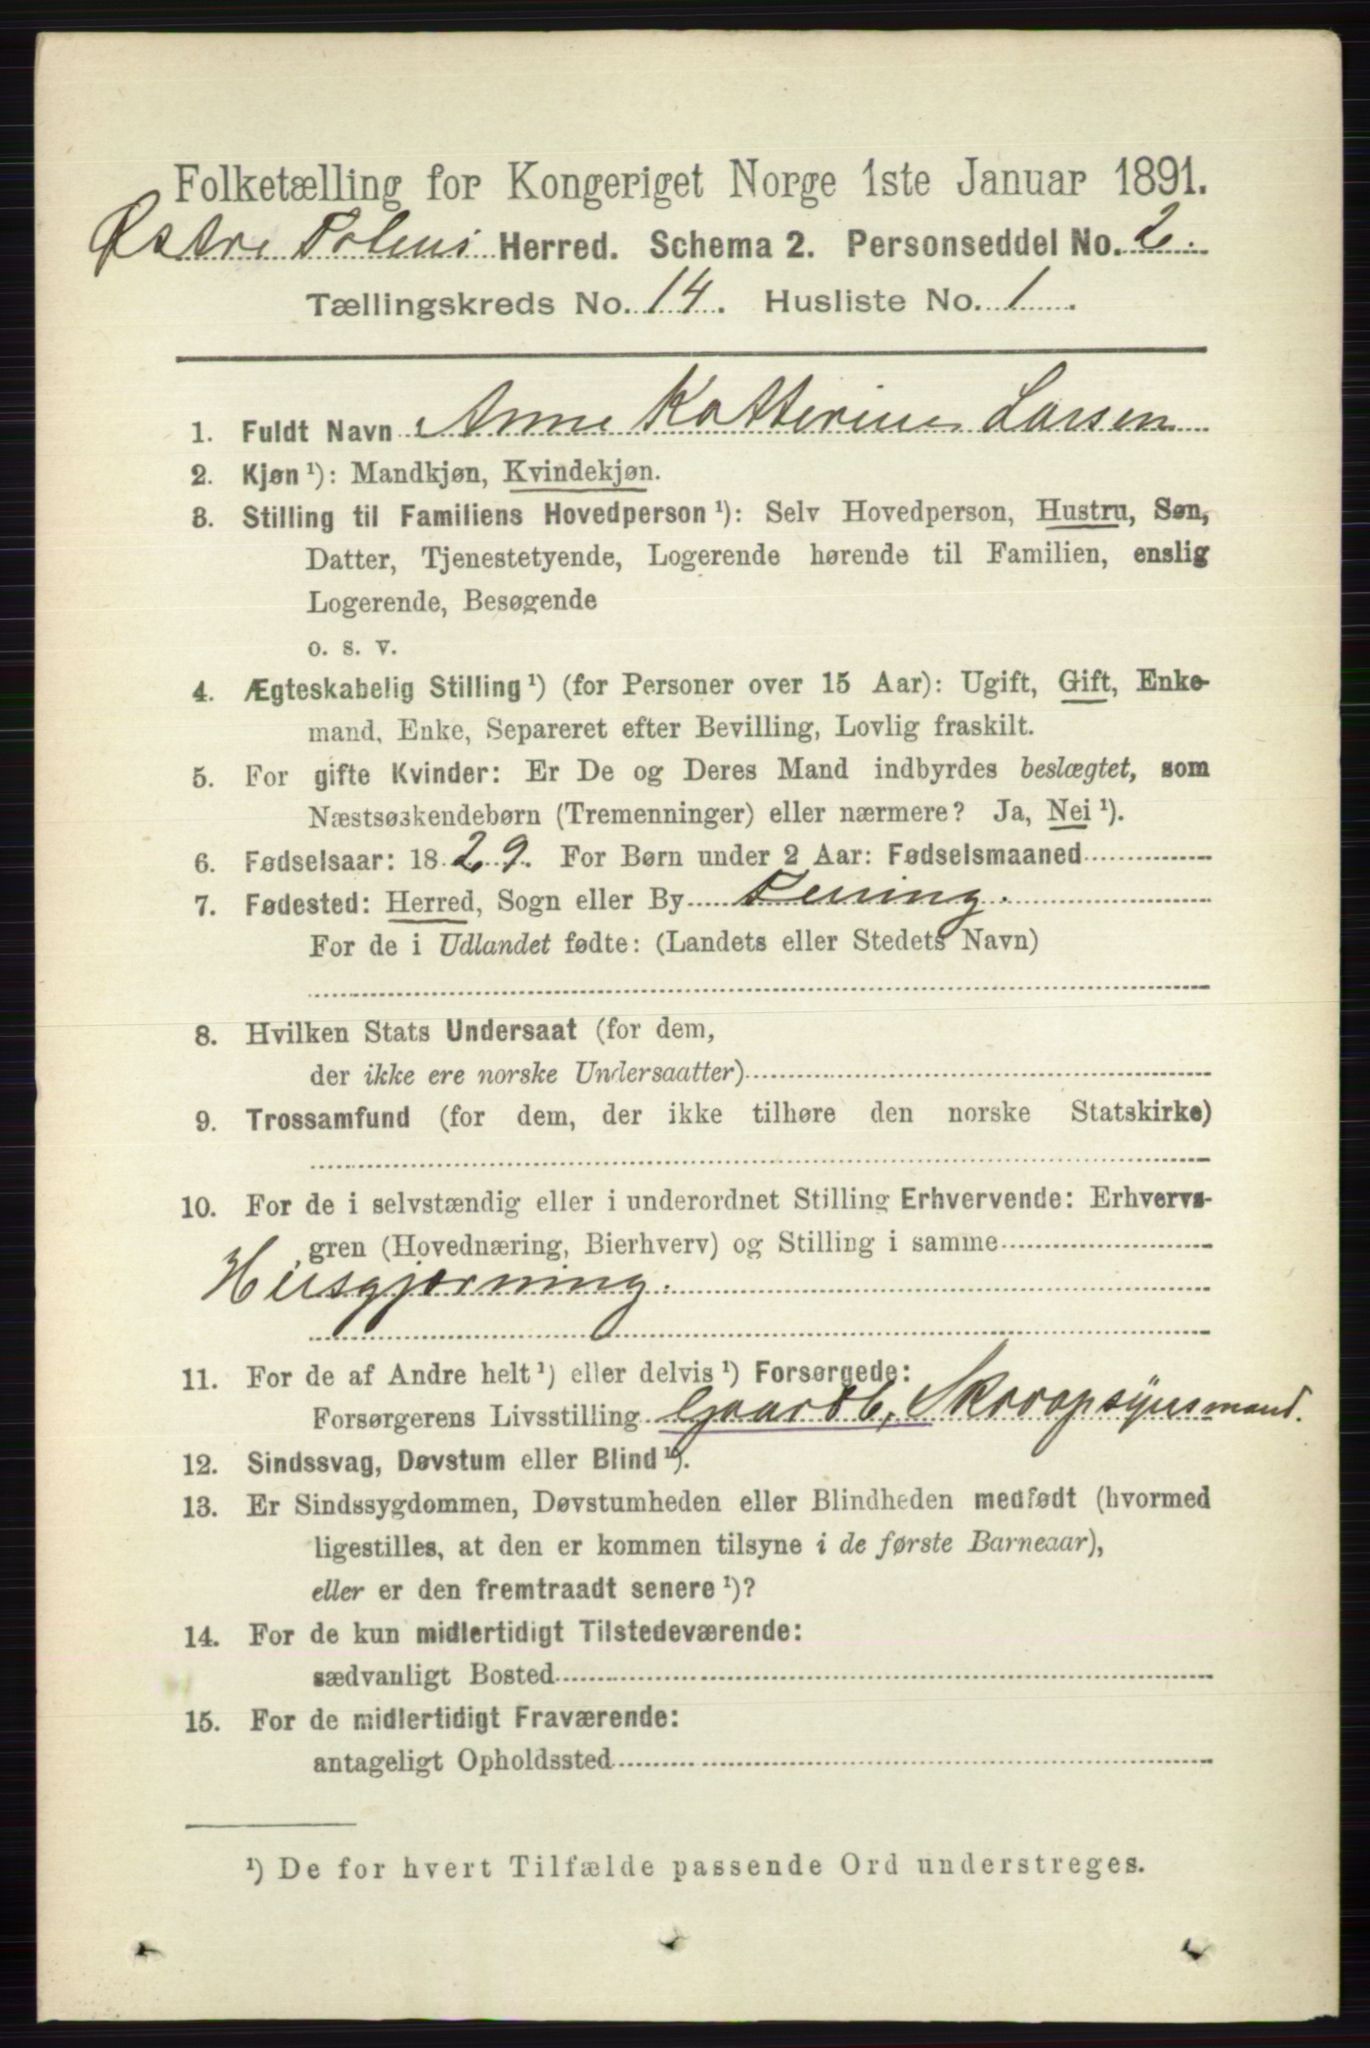 Folketælling for Kongeriget Norge 1ste Januar 1891.
Østre Totens Herred. Schema 2. Personseddel No. 2.
Tællingskreds No. 14. Husliste No. 1.
1. Fuldt Navn Anne Katterine Larsen
2. Kjøn ¹): Mandkjøn, Kvindekjøn.
3. Stilling til Familiens Hovedperson ¹): Selv Hovedperson, Hustru, Søn,
Datter, Tjenestetyende, Logerende hørende til Familien, enslig
Logerende, Besøgende
o. s. v.
4. Ægteskabelig Stilling ¹) (for Personer over 15 Aar): Ugift, Gift, Enke-
mand, Enke, Separeret efter Bevilling, Lovlig fraskilt.
5. For gifte Kvinder: Er De og Deres Mand indbyrdes beslægtet, som
Næstsøskendebørn (Tremenninger) eller nærmere? Ja, Nei ¹).
6. Fødselsaar: 1829. For Børn under 2 Aar: Fødselsmaaned
7. Fødested: Herred, Sogn eller By
For de i Udlandet fødte: (Landets eller Stedets Navn)
8. Hvilken Stats Undersaat (for dem,
der ikke ere norske Undersaatter)
9. Trossamfund (for dem, der ikke tilhøre den norske Statskirke)
10. For de i selvstændig eller i underordnet Stilling Erhvervende: Erhvervs-
gren (Hovednæring, Bierhverv) og Stilling i samme
Husgjerning.
11. For de af Andre helt ¹) eller delvis ¹) Forsørgede:
Forsørgerens Livsstilling Gaardb,
12. Sindssvag, Døvstum eller Blind ¹).
13. Er Sindssygdommen, Døvstumheden eller Blindheden medfødt (hvormed
ligestilles, at den er kommen tilsyne i de første Barneaar),
eller er den fremtraadt senere ¹)?
14. For de kun midlertidigt Tilstedeværende:
sædvanligt Bosted
15. For de midlertidigt Fraværende:
antageligt Opholdssted
¹) De for hvert Tilfælde passende Ord understreges.